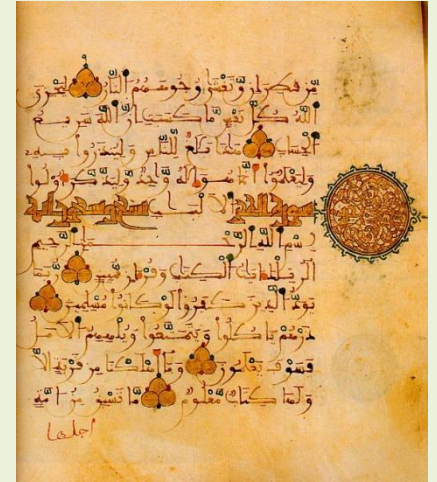 مِّن قَطِرَانٍ وَتَغْشَى وُجُوهَهُمُ النَّارُ لِيَجْزِيَ
اللهُ كُلَّ نَفْسٍ مَّا كَسَبَتْ إِنَّ اللهَ سَرِيعُ
الْحِسَابِ هَٰذَا بَلَٰغٌ لِّلنَّاسِ وَلِيُنذَرُوا بِهِ
وَلِيَعْلَمُوا أَنَّمَا هُوَ إِلَٰهٌ وَٰحِدٌ وَلِيَذَّكَّرَ أُولُوا
سورة الحجر الْأَلْبَٰبِ تسع وتسعون اية
بِسْمِ اللهِ الرَّحْمَٰنِ الرَّحِيمِ
الر تِلْكَ ءَايَٰتُ الْكِتَٰبِ وَقُرْءَانٍ مُّبِينٍ رُّبَمَا
يَوَدُّ الَّذِينَ كَفَرُوا لَوْ كَانُوا مُسْلِمِينَ
ذَرْهُمْ يَاكُلُوا وَيَتَمَتَّعُوا وَيُلْهِهِمُ الْأَمَلُ
فَسَوْفَ يَعْلَمُونَ وَمَا أَهْلَكْنَا مِن قَرْيَةٍ إِلَّا
وَلَهَا كِتَابٌ مَّعْلُومٌ مَّا تَسْبِقُ مِنْ أُمَّةٍ
اجلها